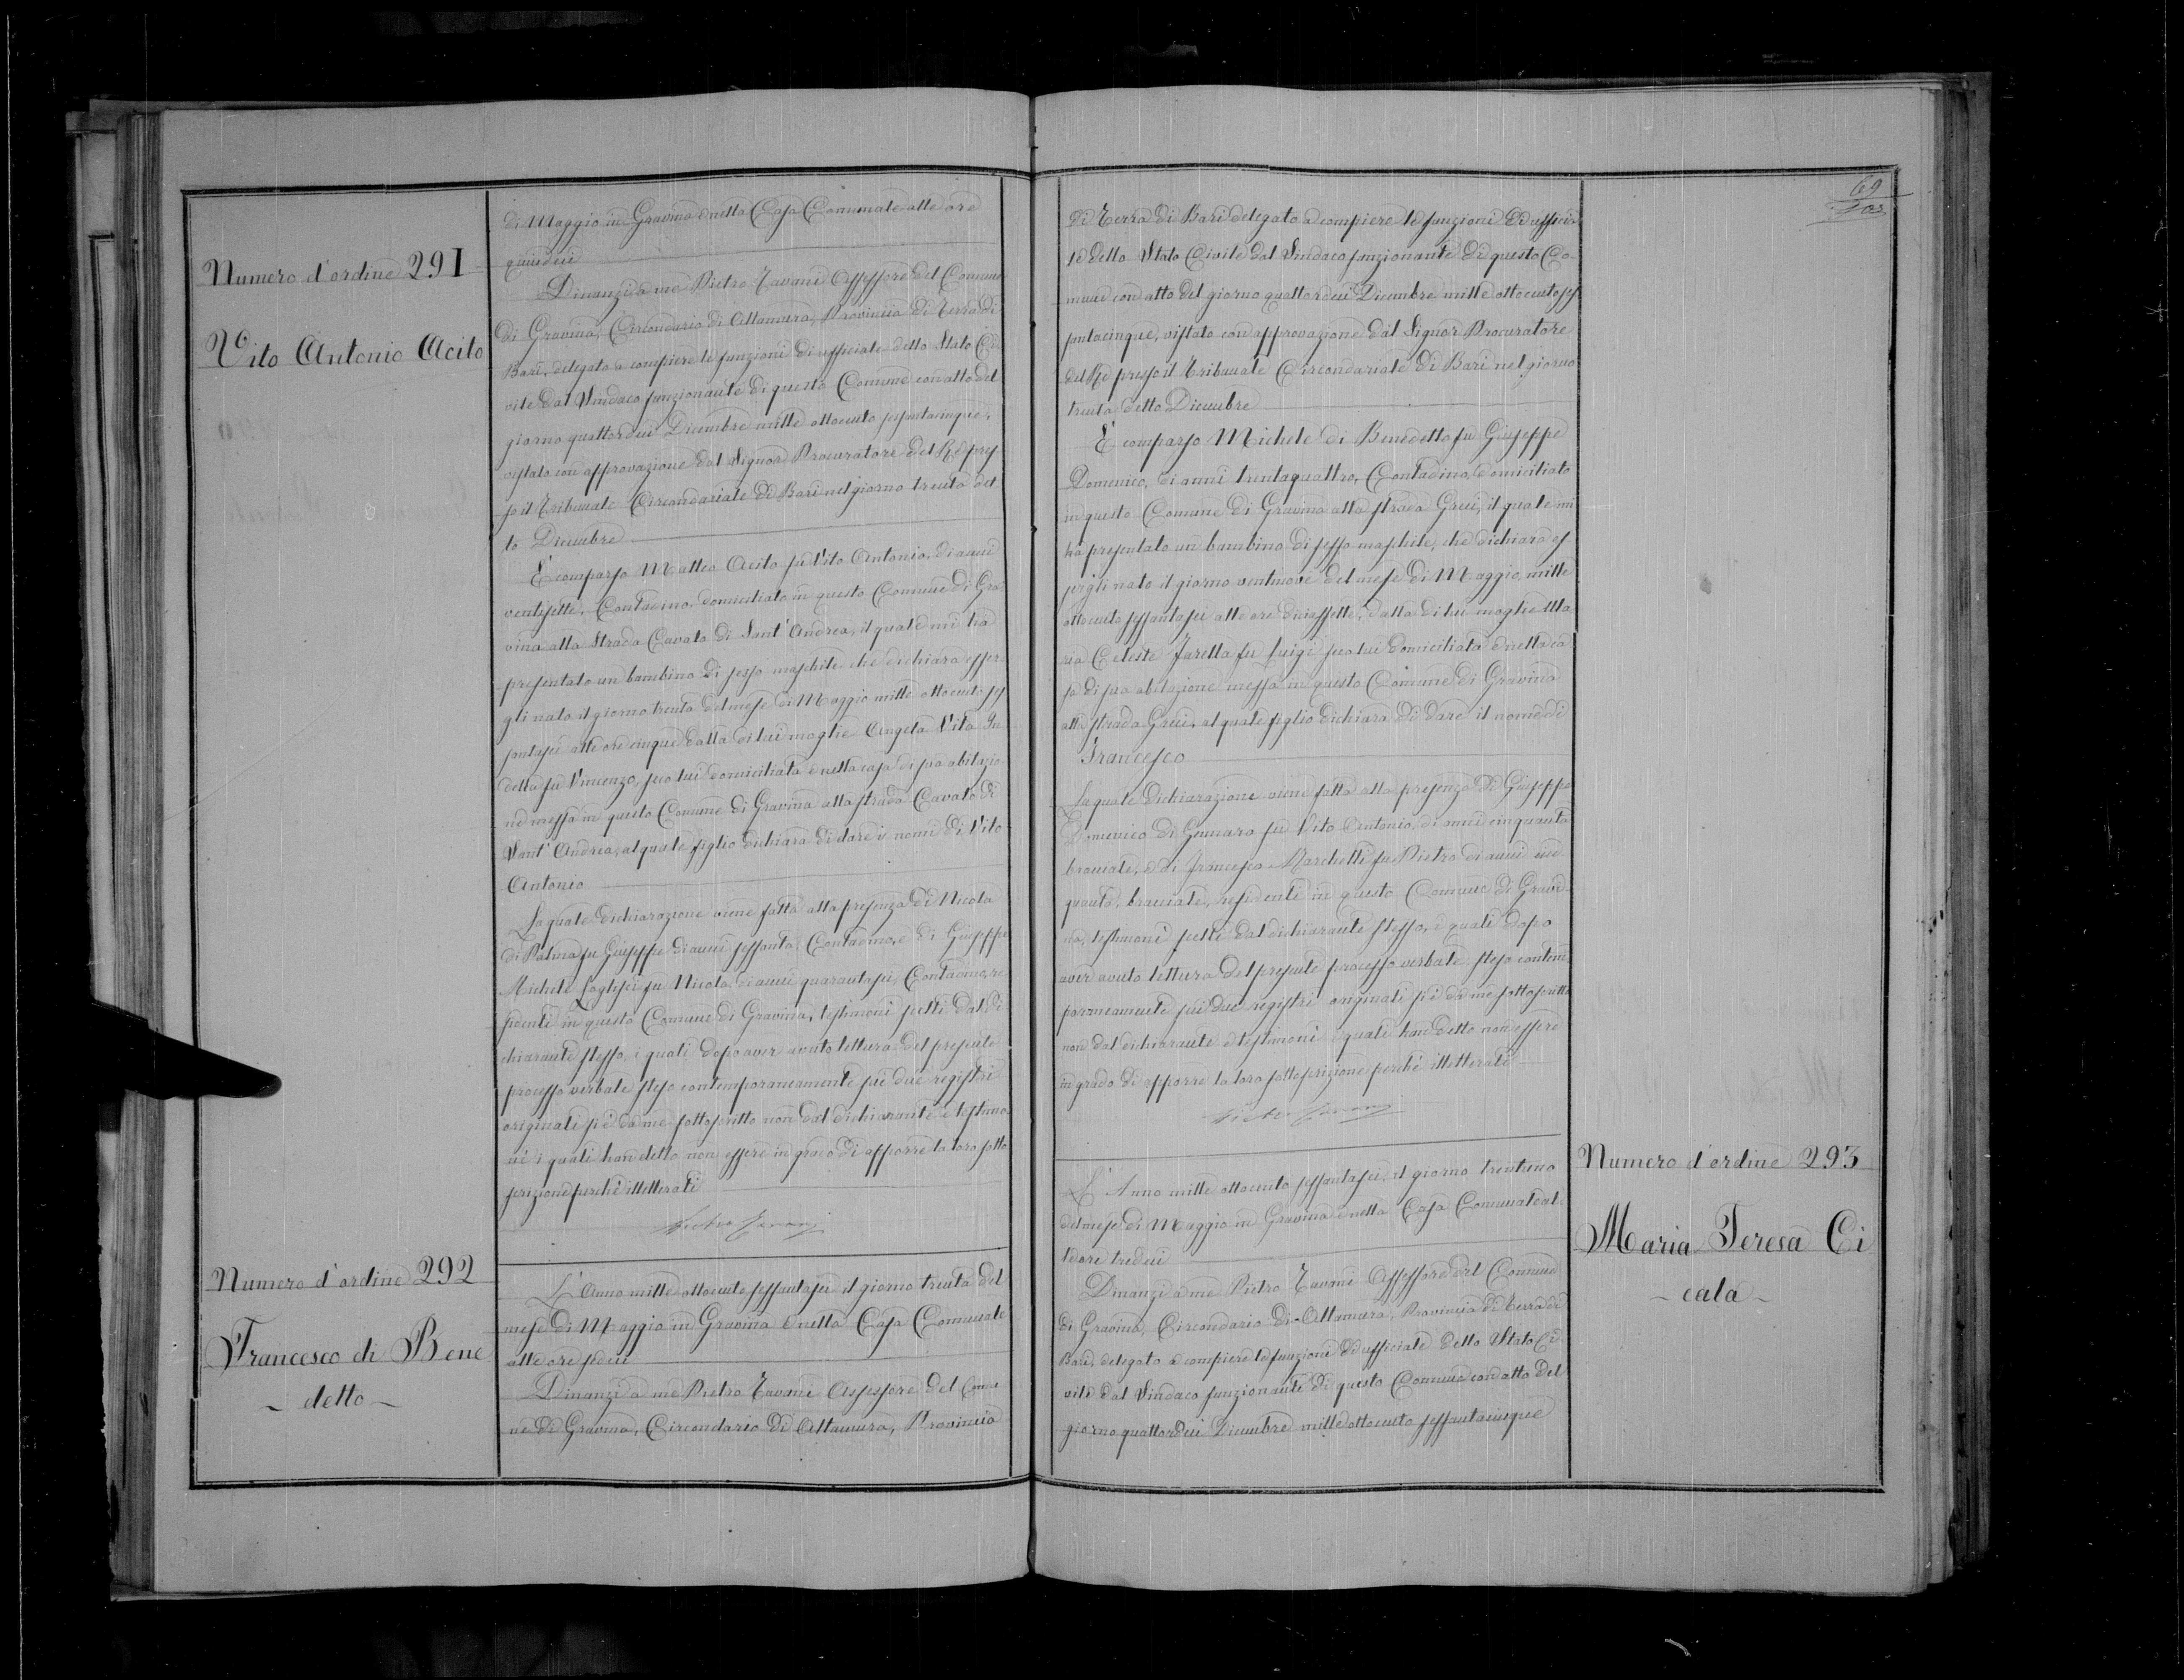 Numero d'ordine 291
Vito Antonio Acito
di Maggio in Gravina e nella Casa Comunale alle ore
quindici
Dinanzi a me Pietro Zavani Assessore del Comune
di Gravina, Circondario di Altamura, Provincia di Terra di
Bari, delegato a compiere le funzioni di uffiziale dello Stato Ci
vile dal Sindaco funzionante di questo Comune con atto del
giorno quattordici Dicembre mille ottocento sessantacinque,
vistato con approvazione dal Signor Procuratore del Re pres
so il Tribunale Circondariale di Bari nel giorno trenta det
to Dicembre
È comparso Matteo Acito fu Vito Antonio, di anni
ventisette, Contadino domiciliato in questo Comune di Gra
vina alla Strada Cavato di Sant'Andrea, il quale mi ha
presentato un bambino di sesso maschile che dichiara esser
gli nato il giorno trenta del mese di Maggio mille ottocento ses
santasei alle ore cinque dalla di lui moglie Angela Vita In
della fu Vincenzo, seco lui domiciliata e nella casa di sua abitazio
ne messa in questo Comune di Gravina alla strada Cavato di
Sant'Andrea, al quale figlio dichiara di dare i nomi di Vito
Antonio
La quale dichiarazione viene fatta alla presenza di Nicola
di Palma fu Giuseppe di anni sessanta, Contadino, e di Giuseppe
Michele fu Nicola, di anni quarantasei, Contadino, re
sidenti in questo Comune di Gravina, testimoni scelti dal di
chiarante stesso, i quali dopo aver avuto lettura del presente
processo verbale steso contemporaneamente sui due registri
originali si è da me sottoscritto non dal dichiarante e testimo
ni i quali han detto non essere in grado di apporre la loro sotto
scrizione perchè illetterati
Pietro Zavani
Numero d'ordine 292
Francesco di Bene
- detto -
L'Anno mille ottocento sessantasei il giorno trenta del
mese di Maggio in Gravina e nella Casa Comunale
alle ore sedici
Dinanzi a me Pietro Zavani Assessore del Comu
ne di Gravina, Circondario di Altamura, Provincia
69
di Terra di Bari delegato a compiere le funzioni di uffizia
le dello Stato Civile dal Sindaco funzionante di questo Co
mune con atto del giorno quattordici Dicembre mille ottocento ses
santacinque, vistato con approvazione dal Signor Procuratore
del Re presso il Tribunale Circondariale di Bari nel giorno
trenta detto Dicembre
È comparso Michele di Benedetto fu Giuseppe
Domenico, di anni trentaquattro, Contadino, domiciliato
in questo Comune di Gravina alla strada Greci, il quale mi
ha presentato un bambino di sesso maschile, che dichiara es
sergli nato il giorno ventinove del mese di Maggio, mille
ottocento sessantasei alle ore diciassette, dalla di lui moglie Ma
ria Celeste Jurella fu Luigi seco lui domiciliata e nella ca
sa di sua abitazione messa in questo Comune di Gravina
alla strada Greci, al quale figlio dichiara di dare il nome di
Francesco
La quale dichiarazione viene fatta alla presenza di Giuseppe
Domenico di Gennaro fu Vito Antonio, di anni cinquanta
bracciale, e di Francesco Marchetti fu Pietro di anni cin
quanta, bracciale, residenti in questo Comune di Gravi
na, testimoni scelti dal dichiarante stesso, i quali dopo
aver avuto lettura del presente processo verbale steso contem
poraneamente sui due registri originali si è da me sottoscritto
non dal dichiarante e testimoni i quali han detto non essere
in grado di apporre la loro sottoscrizione perchè illetterati
Pietro Zavani
Numero d'ordine 293
Maria Teresa Ci
- cala -
L'Anno mille ottocento sessantasei, il giorno trentuno
del mese di Maggio in Gravina e nella Casa Comunale al
le ore tredici
Dinanzi a me Pietro Zavani Assessore del Comune
di Gravina, Circondario di Altamura, Provincia di Terra di
Bari, delegato a compiere le funzioni di uffiziale dello Stato Ci
vile dal Sindaco funzionante di questo Comune con atto del
giorno quattordici Dicembre mille ottocento sessantacinque